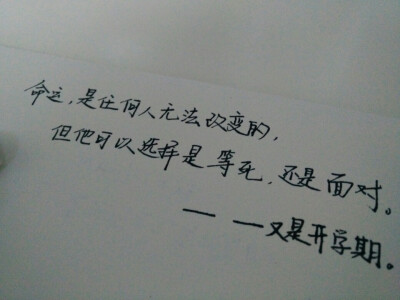 命运,是任何人无法改变的,
但他可以选择是等死,还是面对。
——又是开学期。